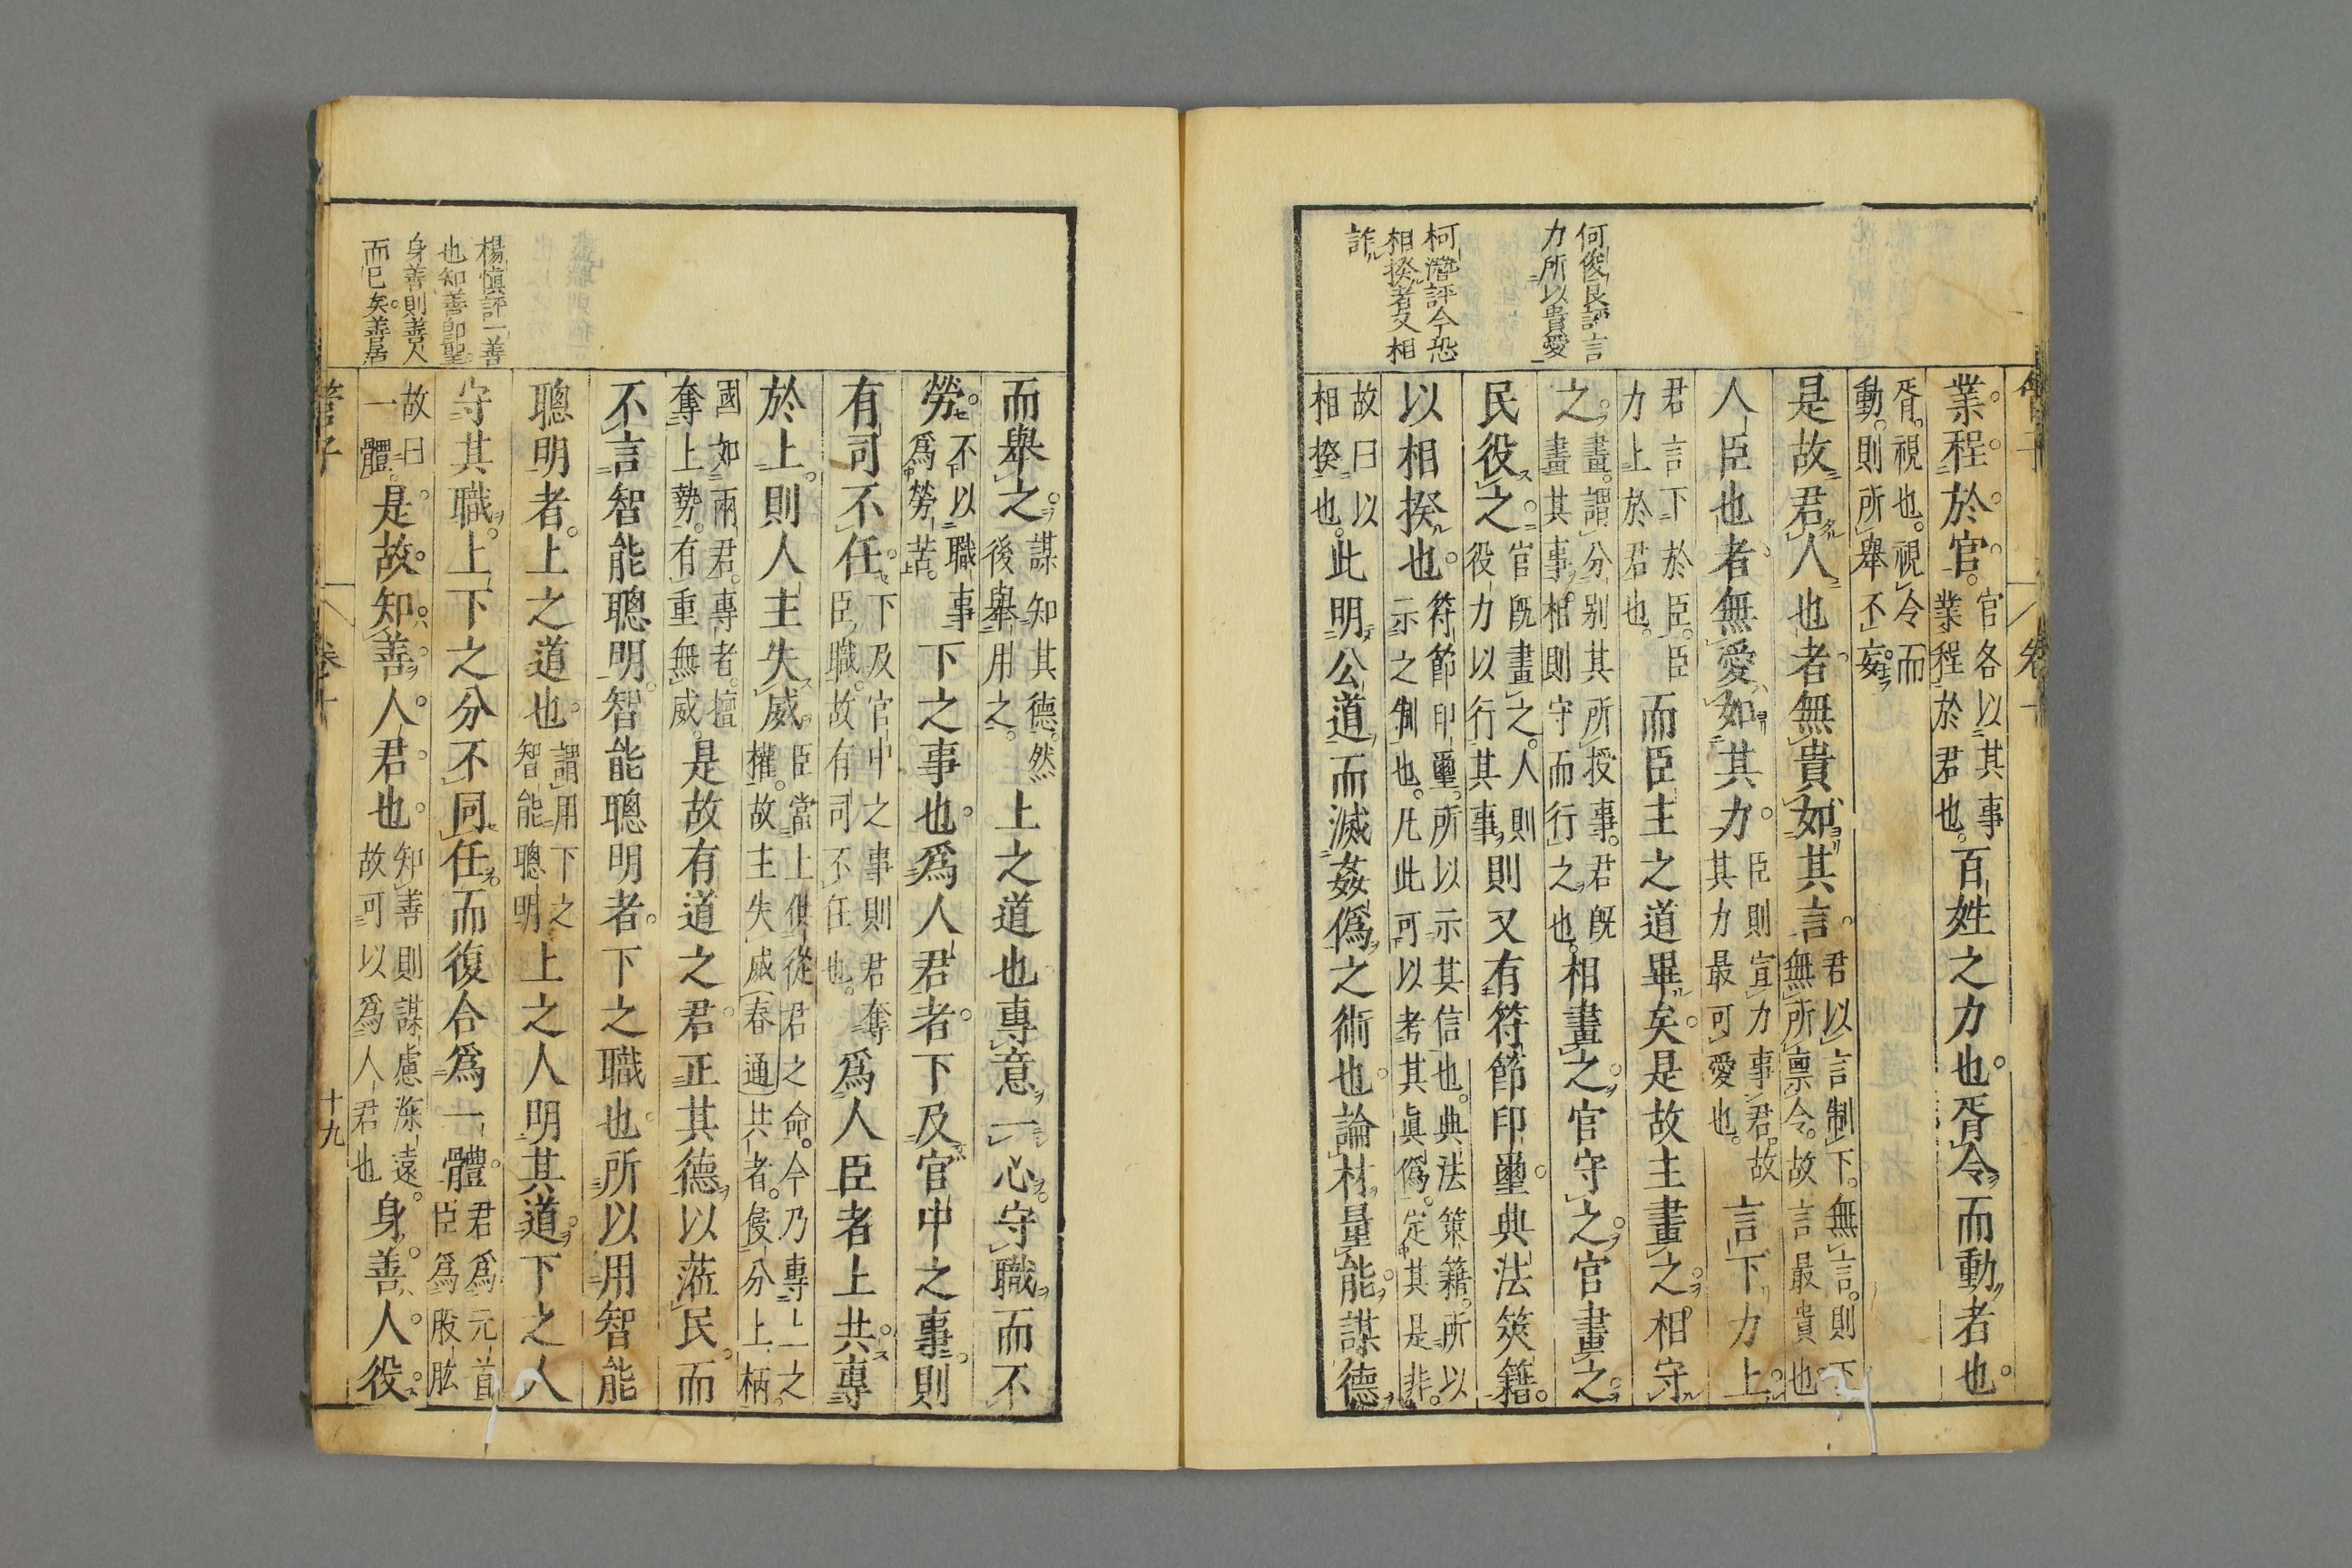 何俊良評言
力所以貴愛
柯潛評今恐
相揆者又相
詐
業程於官官各以其事業程於君也百姓之力也胥令而動者也
胥視也視令而動則所舉不妄
是故君人也者無貴如其言君以言制下無言則下無所稟令故言最貴也
人臣也者無愛如其力臣則宣力事君故其力最可愛也言下力上
君言下於臣臣力上於君也而臣主之道畢矣是故主畫之相守
之畫謂分別其所授事君既畫其事相則守而行之也相畫之官守之官畫之
民役之官既畫之人則役力以行其事則又有符節印璽典法筴籍
以相揆也符節印璽所以示其信也典法策籍所以示之制也凡此可以考其眞僞定其是非
故曰以相揆也此明公道而滅姦僞之術也論材量能謀德
而舉之謀知其德然後舉用之上之道也專意一心守職而不
勞不以職事爲勞苦下之事也爲人君者下及官中之事則
有司不任下及官中之事則君奪臣職故有司不任也爲人臣者上共專
於上則人主失威臣當上供從君之命今乃專上之權故主失威(春通)共者侵分上柄
國如兩君專者擅奪上勢有重無威是故有道之君正其德以蒞民而
不言智能聰明智能聰明者下之職也所以用智能
聰明者上之道也謂用下之智能聰明上之人明其道下之人
守其職上下之分不同任而復合爲一體君爲元首臣爲股肱
故曰一體是故知善人君也知善則謀慮深遠故可以爲人君也身善人役
楊愼評一善
也知善卽聖
身善則善人
而已矣善居
管子
卷十
十九